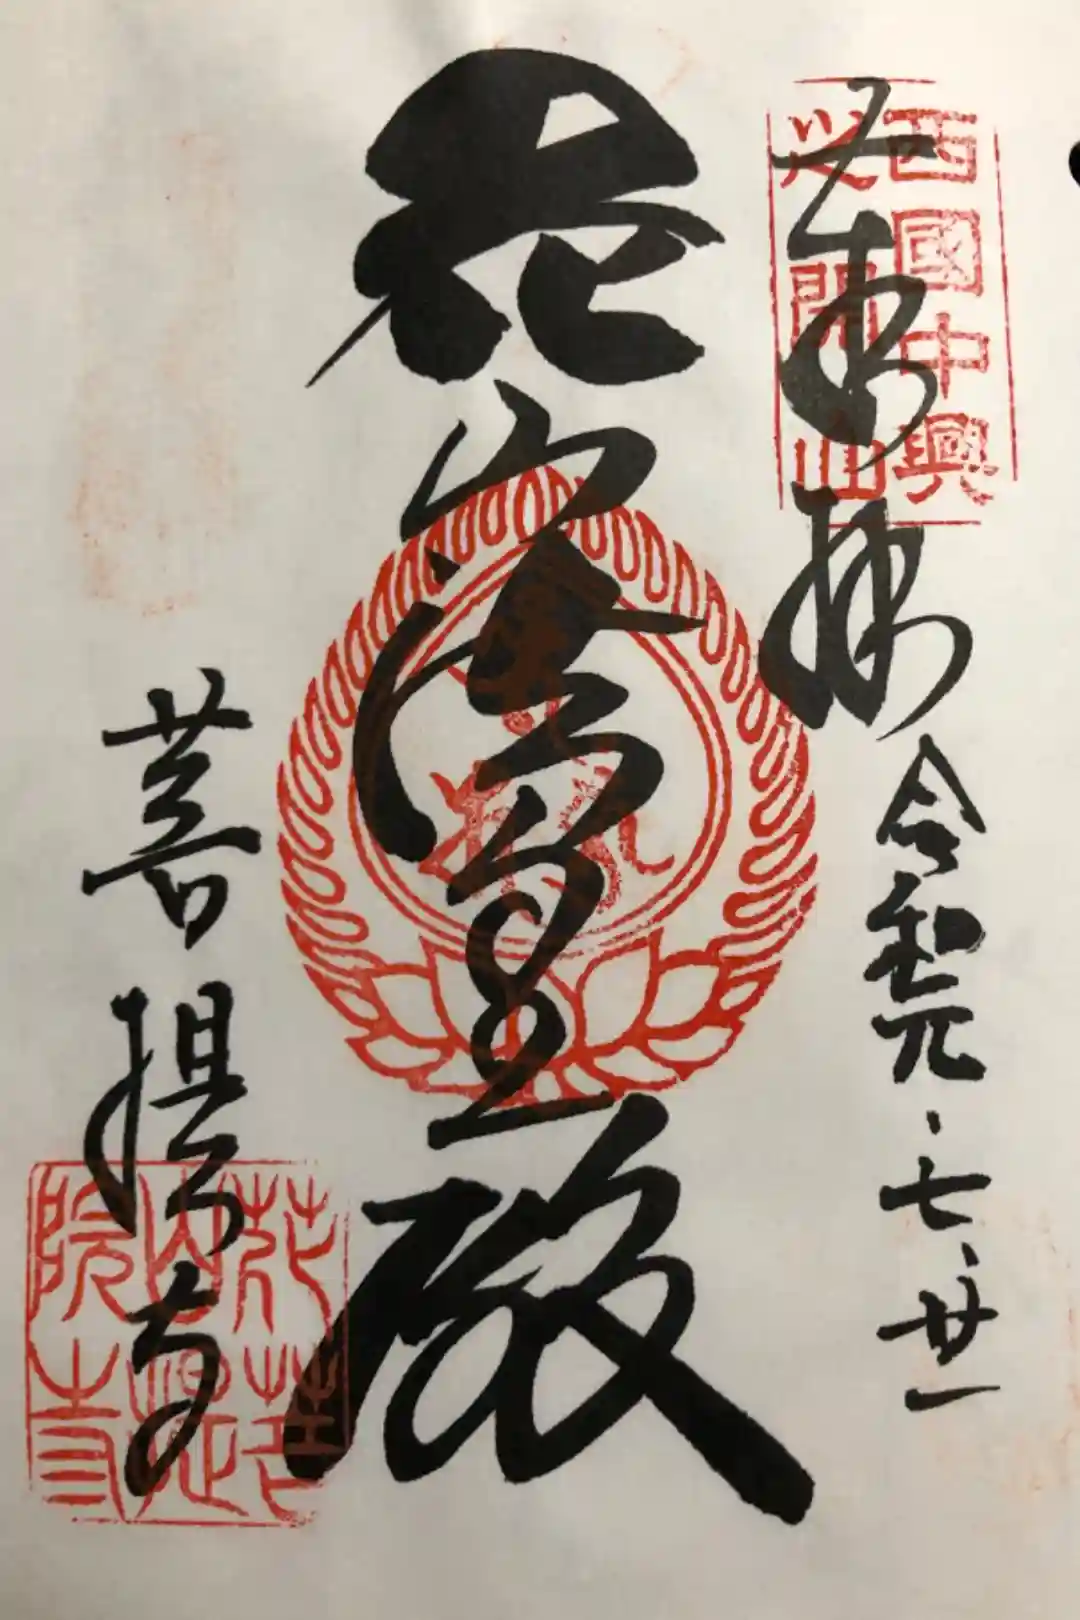 奉拝
西國中興
之開山
令和元・七・廿一
花山法皇殿
菩提寺
花山院
菩提寺